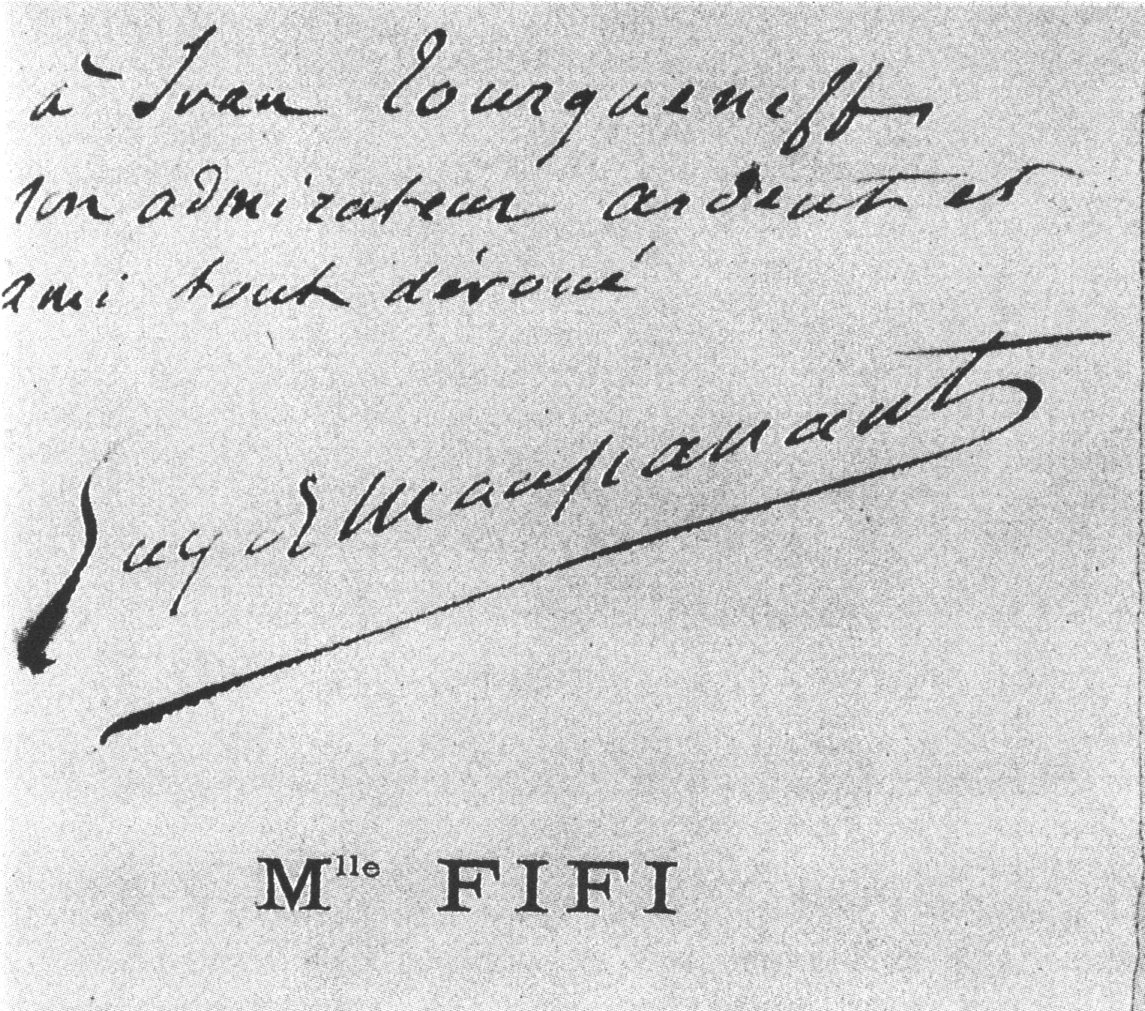 à Ivan Tourgueneff
son admirateur ardent et
ami tout dévoué
Guy de Maupassant
Mlle FIFI